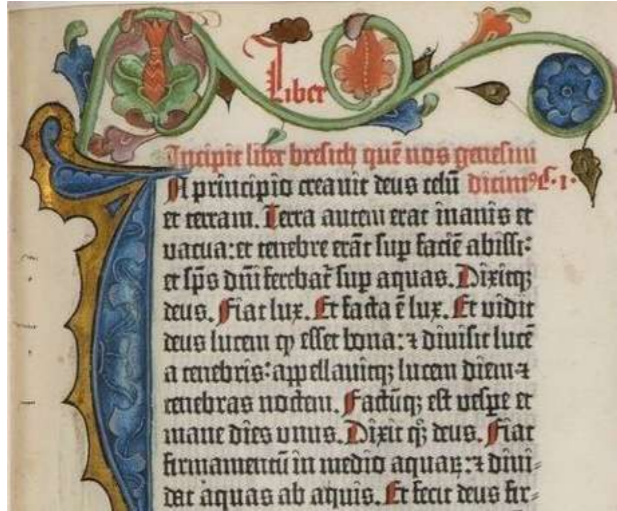 Liber
Incipit liber bresich quē nos genesim
In principio creavit deus celū dicim⁹ c. 1.
et terram. Terra autem erat inanis et
vacua: et tenebre erāt sup faciē abissi:
et sp̄s dn̄i ferebat̄ sup aquas. Dixitq;
deus. Fiat lux. Et facta ē lux. Et vidit
deus lucem ꝙ esset bona: ⁊ divisit lucē
a tenebris: appellavitq; lucem diem ⁊
tenebras noctem. Factūq; est vespe et
mane dies unus. Dixit qꝫ deus. Fiat
firmamentū in medio aquaꝝ: ⁊ divi-
dat aquas ab aquis. Et fecit deus fir-